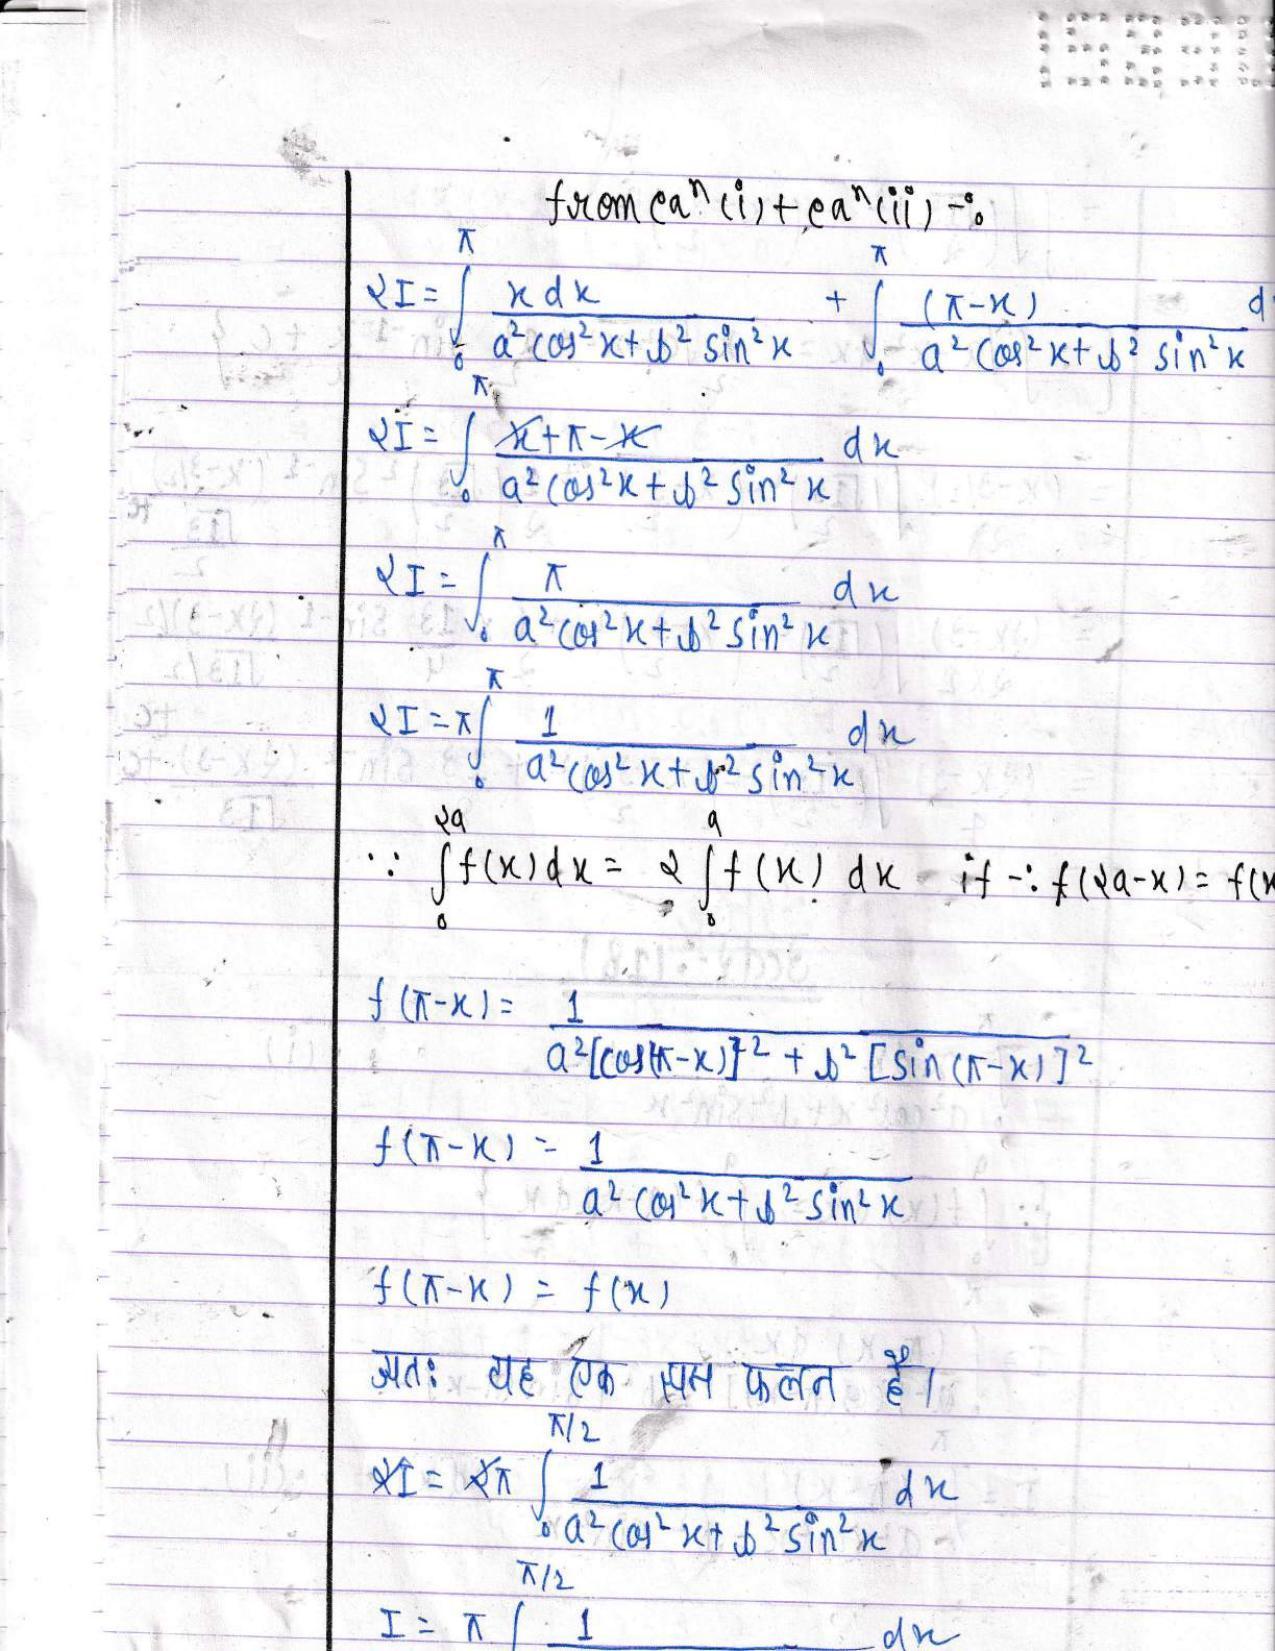 from eqⁿ (i) + eqⁿ (ii) -:
2I = ∫₀^π x dx / (a² cos² x + b² sin² x) + ∫₀^π (π-x) / (a² cos² x + b² sin² x) d
2I = ∫₀^π (x + π - x) / (a² cos² x + b² sin² x) dx
2I = ∫₀^π π / (a² cos² x + b² sin² x) dx
2I = π ∫₀^π 1 / (a² cos² x + b² sin² x) dx
∵ ∫₀^2a f(x) dx = 2 ∫₀^a f(x) dx if -: f(2a-x) = f(x
f(π-x) = 1 / (a² [cos(π-x)]² + b² [sin(π-x)]²)
f(π-x) = 1 / (a² cos² x + b² sin² x)
f(π-x) = f(x)
अतः यह एक सम फलन है।
2I = 2π ∫₀^π/2 1 / (a² cos² x + b² sin² x) dx
I = π ∫^π/2 1 dx